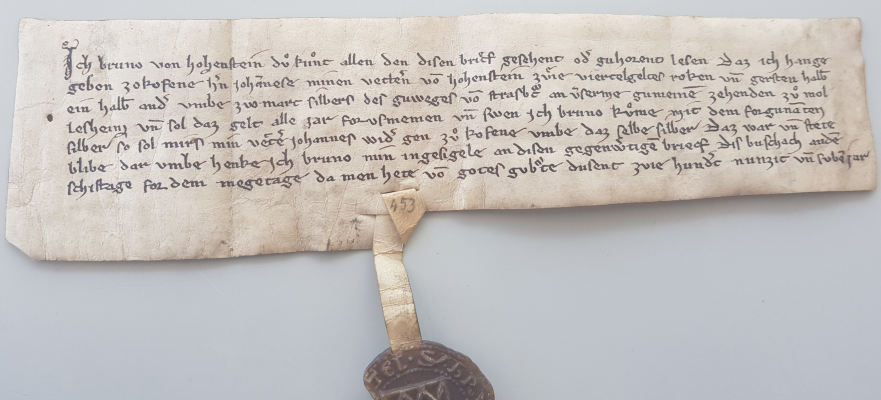 Ich bruno von hohenstein dů kůnt allen den disen brief gesehent odʼ guhorent lesen Daz ich hange
gebon zokofene hʼn johānese minen vettern vō hohenstein zwie viertelgeltes roken vn̄ gersten halb
ein halb andʼ vmbe zwo marc silbers des guweges vō strasbʼg an vʼserme gumeinē zehenden zů mol
lesheim vn̄ sol daz gelt alle jar for vsnemen vn̄ swen ich bruno kůme mit dem forgunāten
silber so sol mirs min vetʼe johannes widʼ gen zů kofene vmbe daz selbe silber Daz war vn̄ stete
blibe dar vmbe henke ich bruno min ingesigele an disen gegenwʼtigē brief Dis buschach andē
schistage for dem megetage da men hete vō gotes gubʼte dusent zwie hundʼt nunzit vn̄ subʼ jar
453